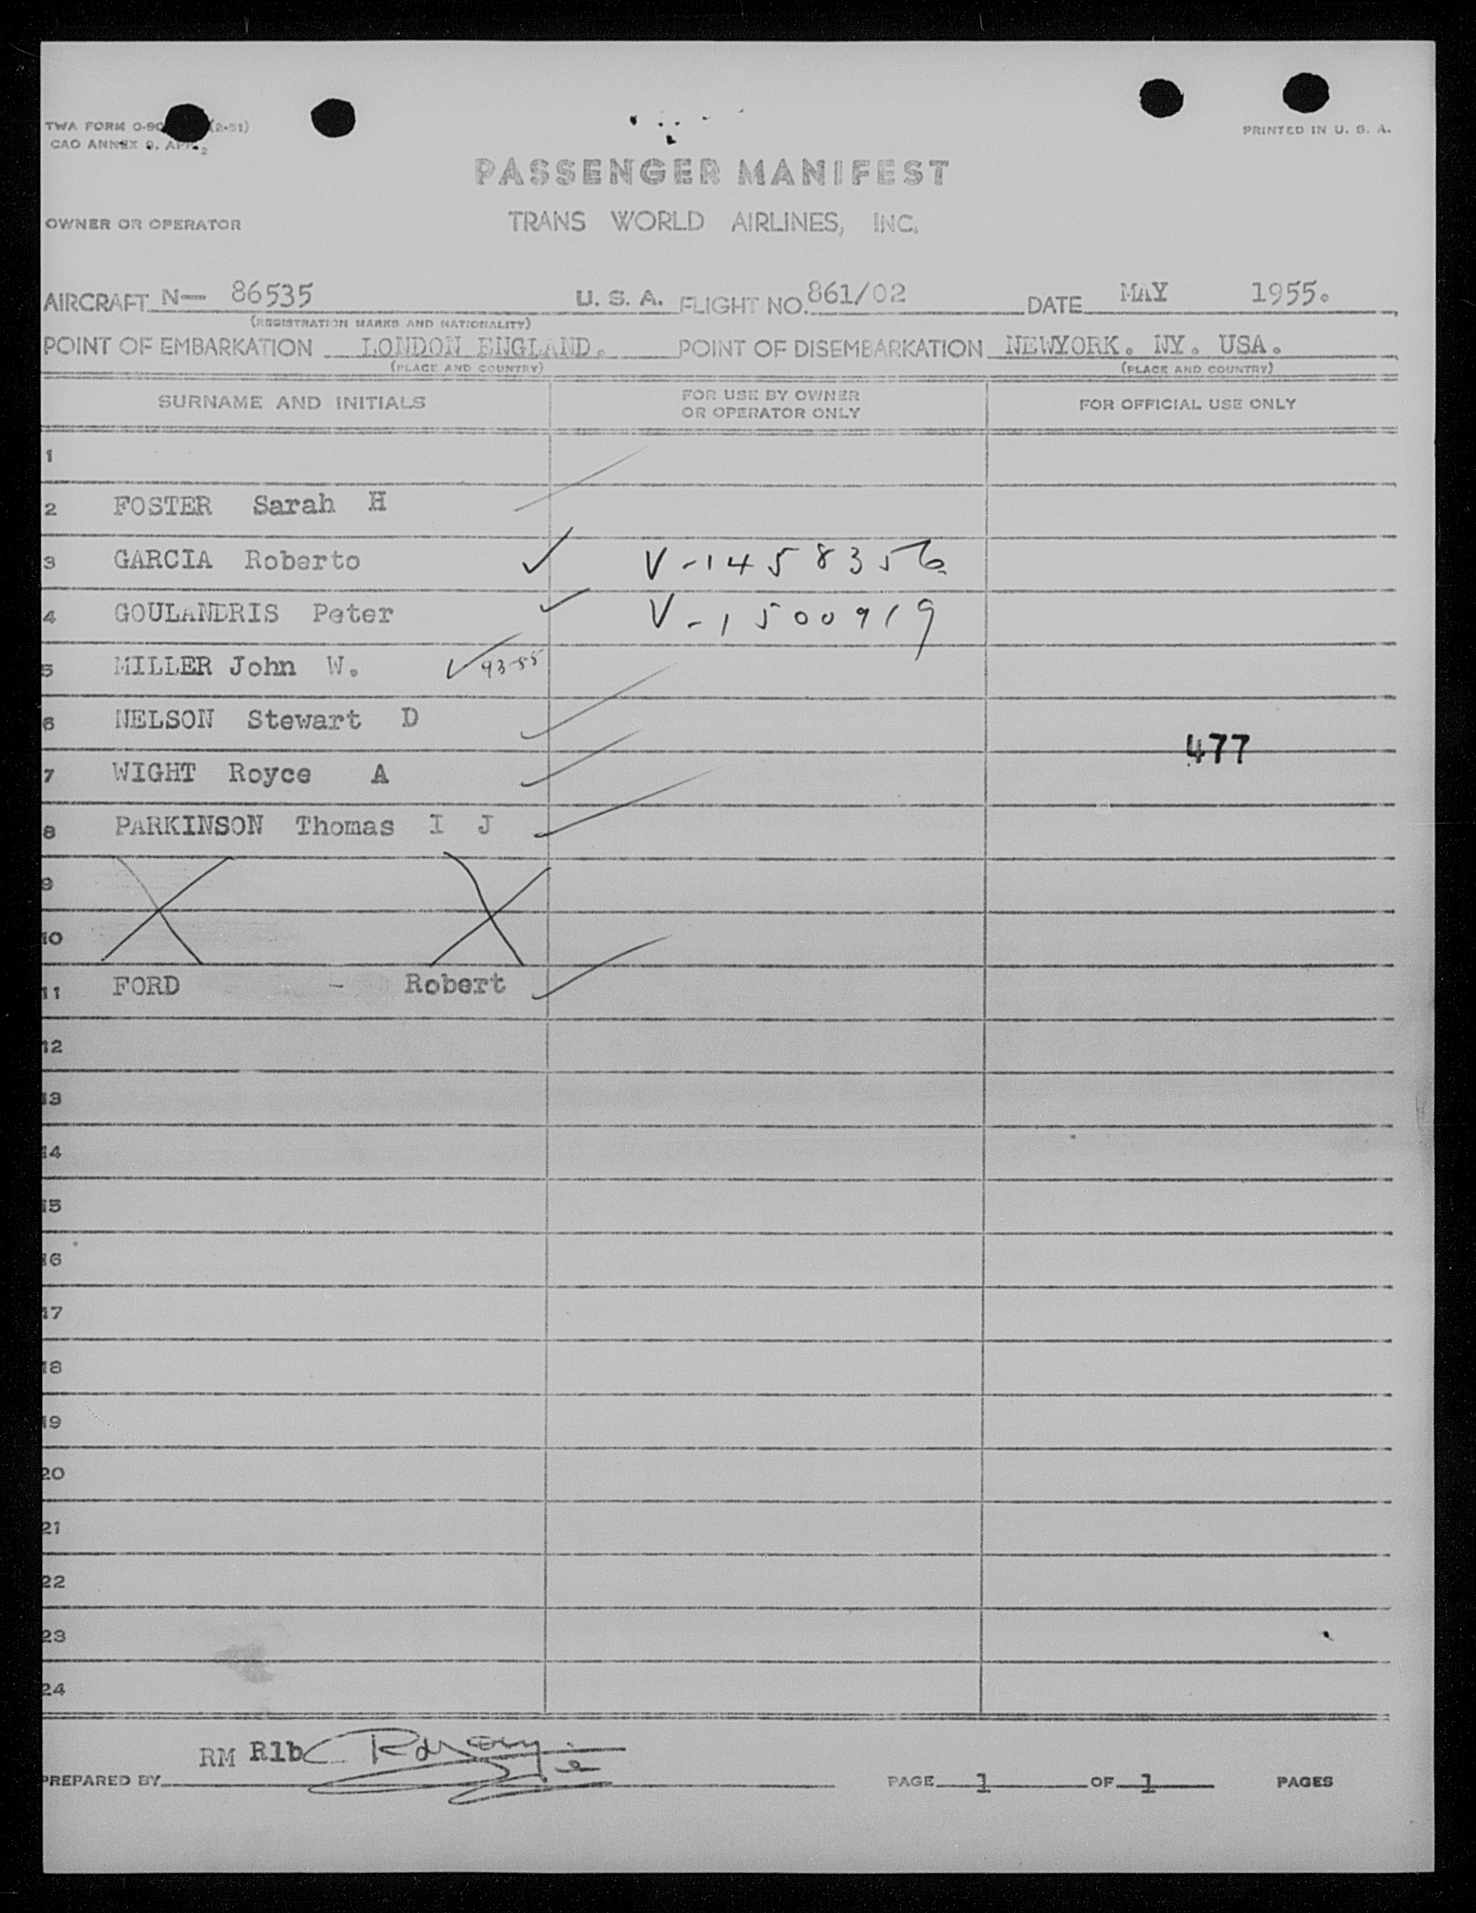 TWA FORM 0-90 (2-51)
PRINTED IN U. S. A.
CAO ANNEX 9, APP. 2
PASSENGER MANIFEST
OWNER OR OPERATOR TRANS WORLD AIRLINES, INC.
AIRCRAFT N— 86535 U. S. A. FLIGHT NO. 861/02 DATE MAY 1955.
(REGISTRATION MARKS AND NATIONALITY)
POINT OF EMBARKATION LONDON ENGLAND. POINT OF DISEMBARKATION NEWYORK. NY. USA.
(PLACE AND COUNTRY) (PLACE AND COUNTRY)
SURNAME AND INITIALS FOR USE BY OWNER OR OPERATOR ONLY FOR OFFICIAL USE ONLY
1
2 FOSTER Sarah H
3 GARCIA Roberto V-1458356
4 GOULANDRIS Peter V-1500919
5 MILLER John W. 93-55
6 NELSON Stewart D
477
7 WIGHT Royce A
8 PARKINSON Thomas I J
9
10
11 FORD - Robert
12
13
14
15
16
17
18
19
20
21
22
23
24
RM R1b
PREPARED BY PAGE 1 OF 1 PAGES